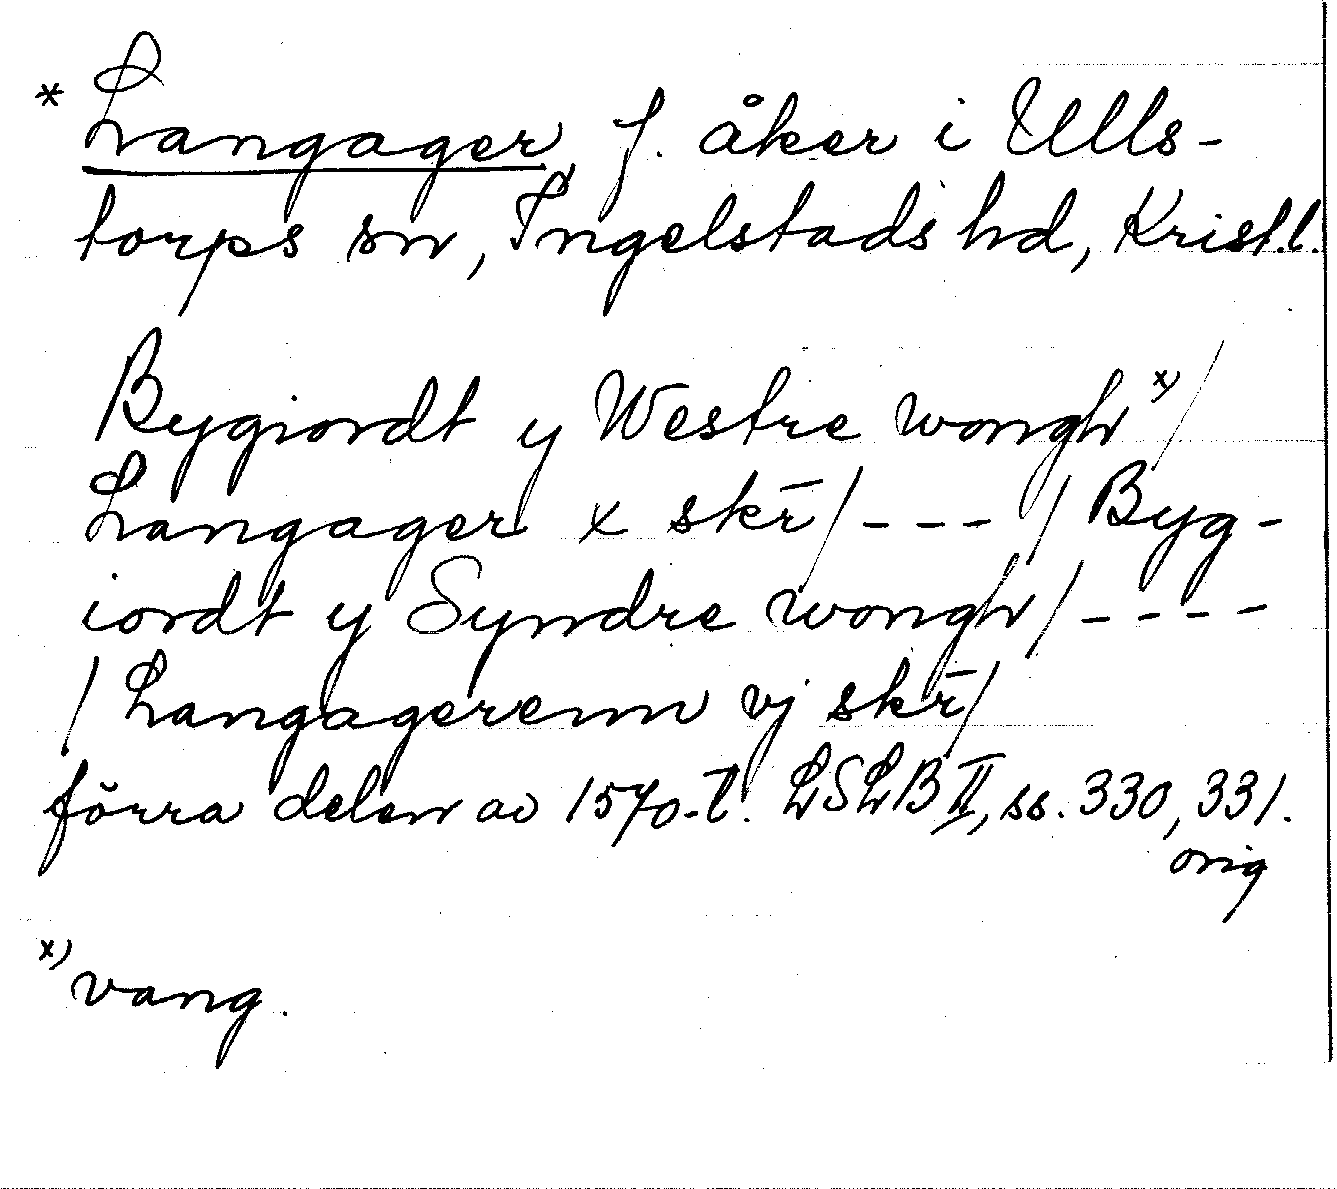 * Langager, f. åker i Ulls-
torps sn, Ingelstads hd, Krist.l.
Bygiordt y Westre wongh x) /
Langager x skr̄ / - - - / Byg-
iordt y Syndre wongh / - - - -
/ Langagerenn vj skr̄ /
förra delen av 1570-t. LSLB II, ss. 330, 331.
orig
x) vang.